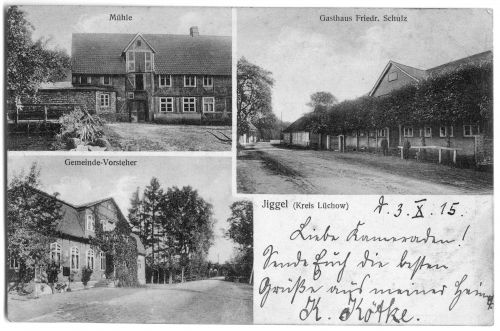 Mühle
Gasthaus Friedr. Schulz
Gemeinde-Vorsteher
Jiggel (Kreis Lüchow)
d. 3. X. 15.
Liebe Kameraden!
Sende Euch die besten
Grüße aus meiner Heimat
K. Kötke.